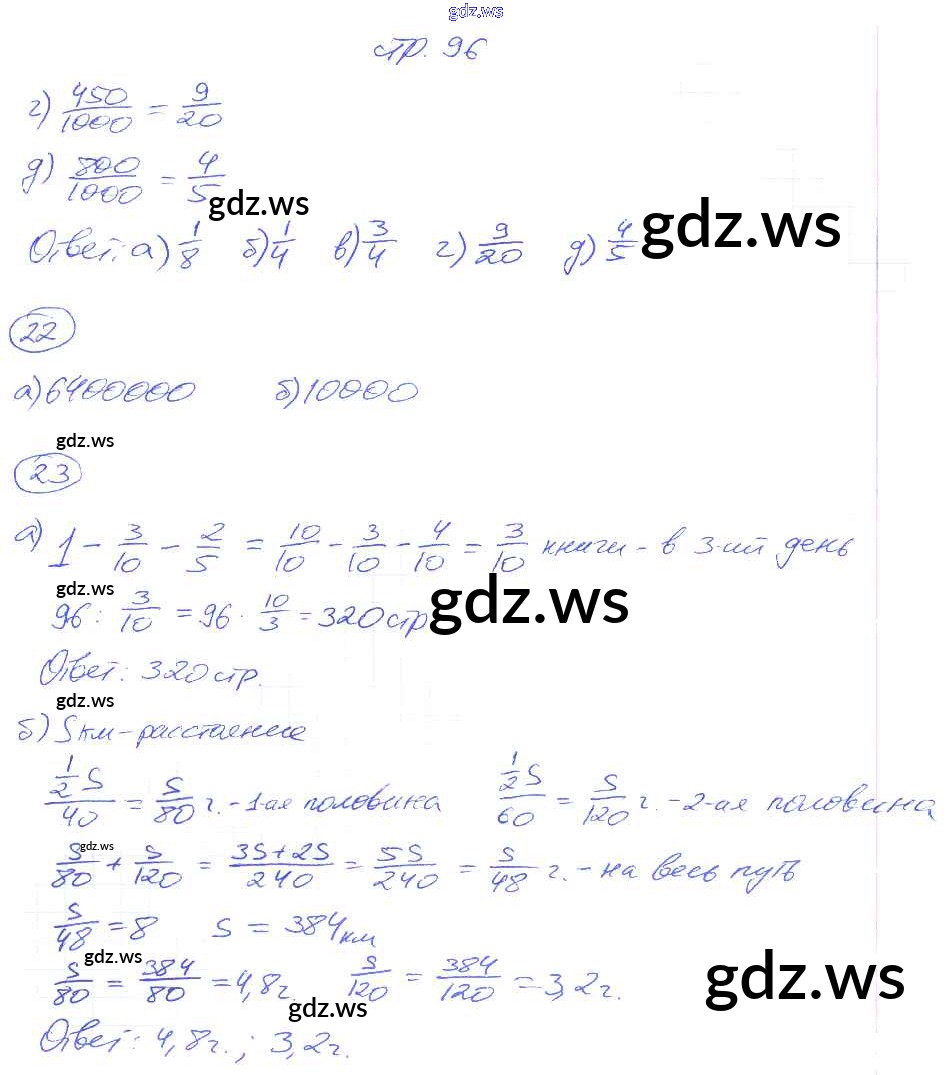 gdz.ws
стр. 96
г) 450/1000 = 9/20
д) 800/1000 = 4/5
gdz.ws
gdz.ws
Ответ: а) 1/8 б) 1/4 в) 3/4 г) 9/20 д) 4/5
22
а) 6400000 б) 10000
gdz.ws
23
а) 1 - 3/10 - 2/5 = 10/10 - 3/10 - 4/10 = 3/10 книги - в 3-ий день
gdz.ws
gdz.ws
96 : 3/10 = 96 · 10/3 = 320 стр
Ответ: 320 стр.
gdz.ws
б) S км - расстаение
1/2 S/40 = S/80 г. - 1-ая половина 1/2 S/60 = S/120 г. - 2-ая половина
gdz.ws
S/80 + S/120 = 3S+2S/240 = 5S/240 = S/48 г. - на весь путь
S/48 = 8 S = 384 км
gdz.ws
S/80 = 384/80 = 4,8 г. S/120 = 384/120 = 3,2 г.
gdz.ws
gdz.ws
Ответ: 4,8 г.; 3,2 г.